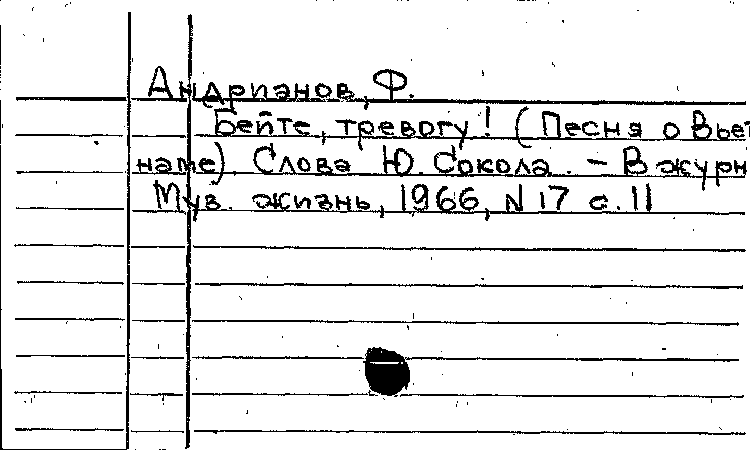 Андрианов, Ф.
Бейте, тревогу! (Песня о Вьет
наме). Слова Ю. Сокола. – В журн
Муз. жизнь, 1966, N 17 с. 11